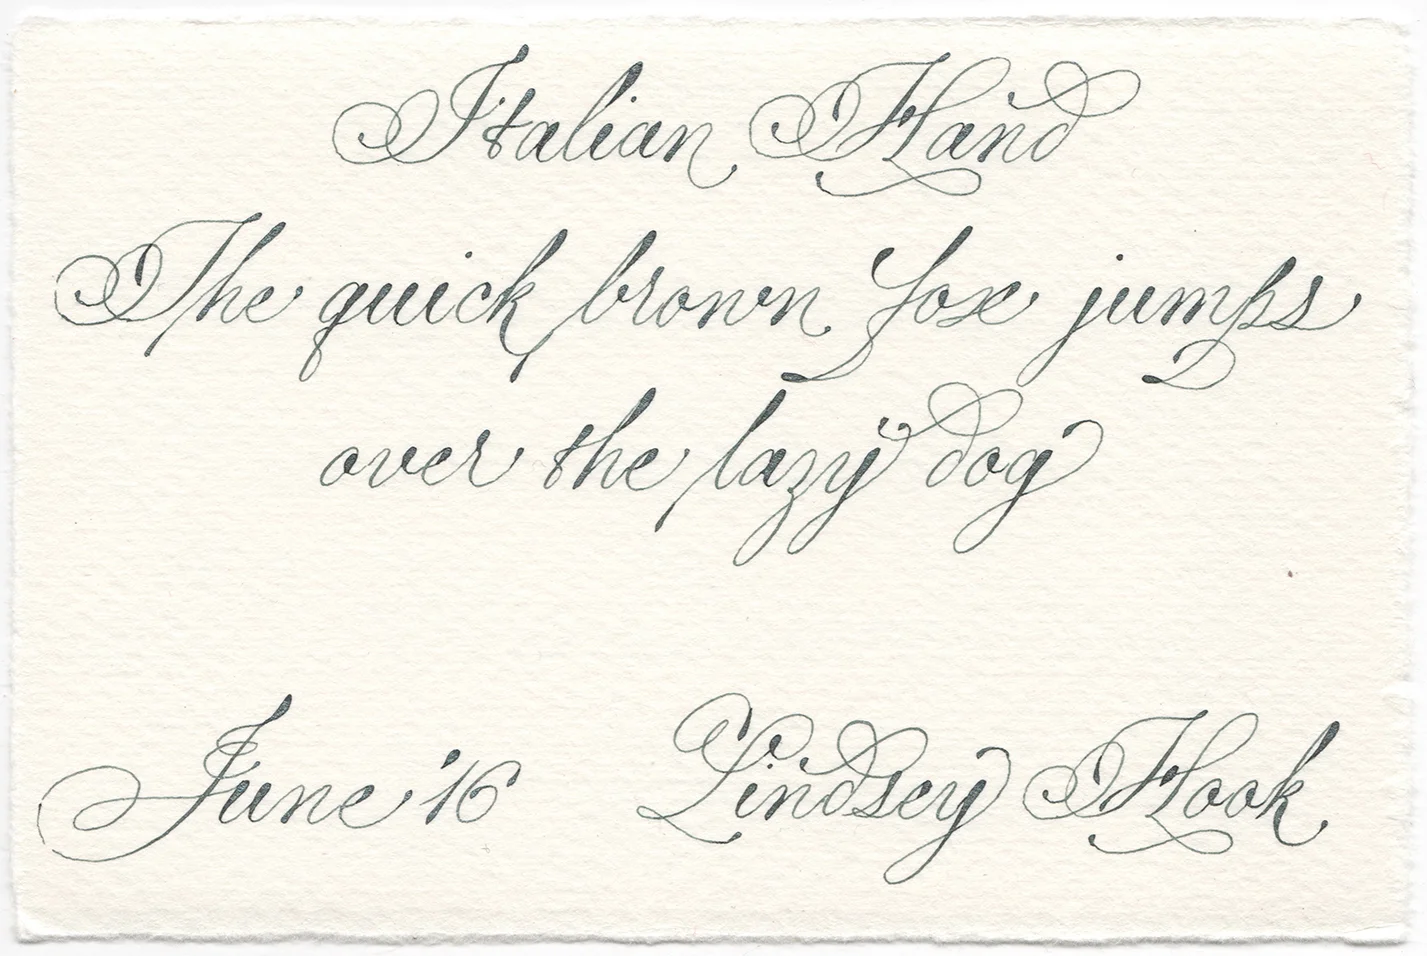 Italian Hand
The quick brown fox jumps
over the lazy dog
June '16 Lindsey Hook